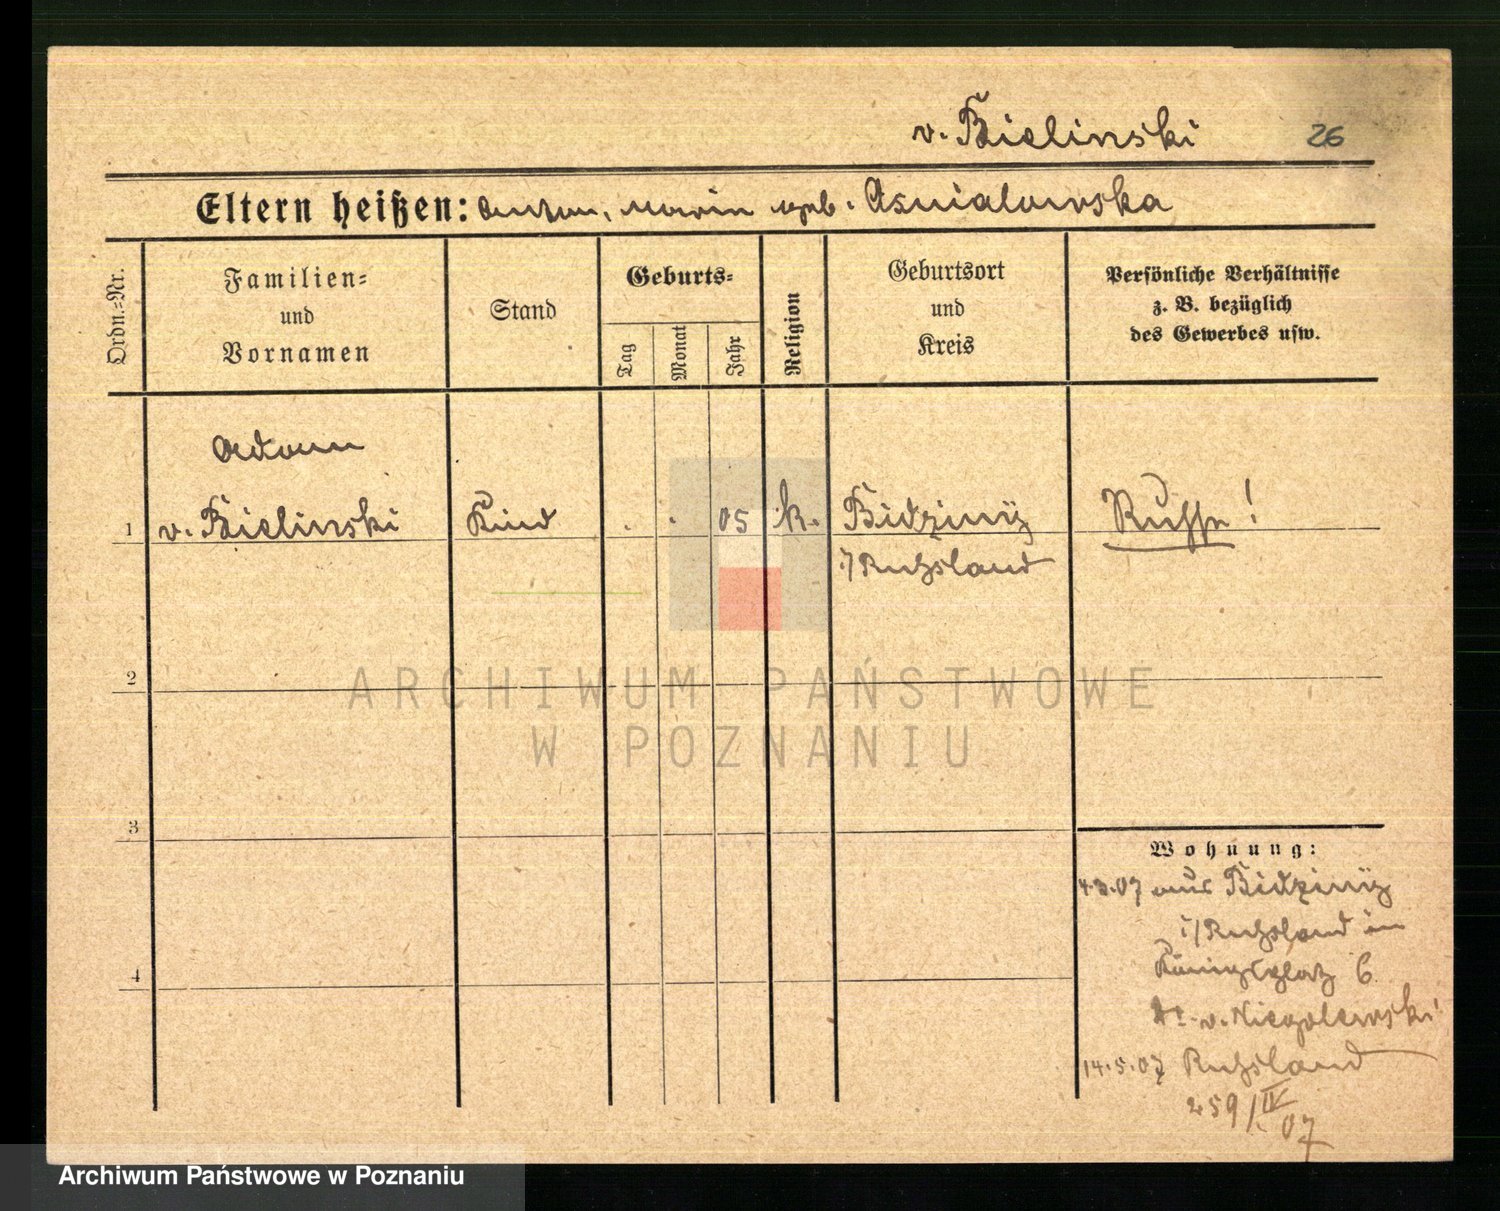 v. Bielinski 26
Eltern heißen: Anton, Maria geb. Asnialowska
Ordn.=Nr.
Familien=
und
Vornamen
Stand
Geburts=
Tag
Monat
Jahr
Religion
Geburtsort
und
Kreis
Persönliche Verhältnisse
z. B. bezüglich
des Gewerbes usw.
Adam
1 v. Bielinski Kind . . 05 k. Bidziny Russe!
i/Russland
2
ARCHIWUM PAŃSTWOWE
W POZNANIU
3
Wohnung:
4.3.07 aus Bidziny
i/Russland in
4 Königsplatz 6
v. Niegolewski
14.5.07 Russland
259/IV.07
Archiwum Państwowe w Poznaniu